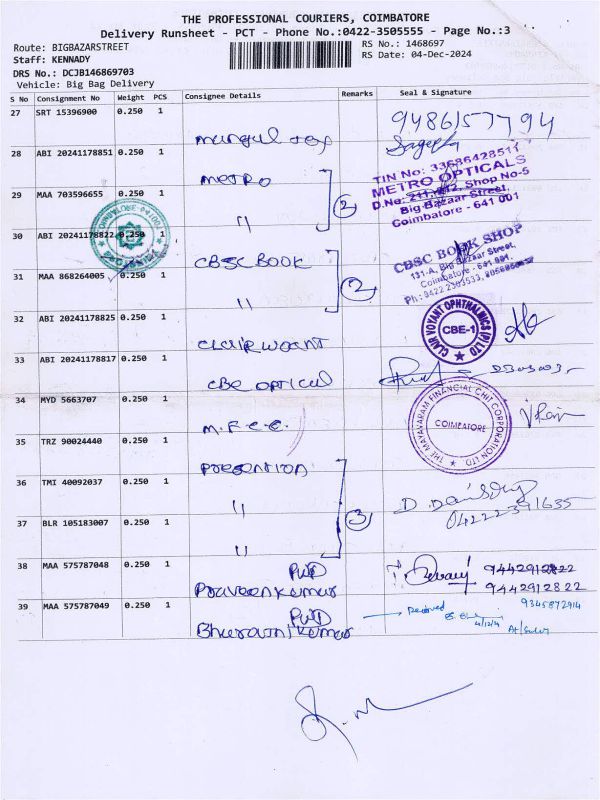 THE PROFESSIONAL COURIERS, COIMBATORE
Delivery Runsheet - PCT - Phone No.:0422-3505555 - Page No.:3
Route: BIGBAZARSTREET
RS No.: 1468697
Staff: KENNADY
RS Date: 04-Dec-2024
DRS No.: DCJB146869703
Vehicle: Big Bag Delivery
S No Consignment No Weight PCS Consignee Details Remarks Seal & Signature
27 SRT 15396900 0.250 1
94861577194
28 ABI 20241178851 0.250 1
METRO
TIN No: 33686428511
METRO OPTICALS
D.No: 211, 212, Shop No-5
Big Bazaar Street,
Coimbatore - 641 001
29 MAA 703596655 0.250 1
" 2
30 ABI 20241178822 0.250 1
CBSC BOOK
CBSC BOOK SHOP
131-A, Big Bazaar Street,
Coimbatore - 641 001.
31 MAA 868264005 0.250 1
" 2
32 ABI 20241178825 0.250 1
CLAIR VOYANT OPHTHALMICS (P) LTD
CBE-1
33 ABI 20241178817 0.250 1
CBE OPTICAL
34 MYD 5663707 0.250 1
M.F.C.C.
THE MAYAVARAM FINANCIAL CHIT CORPORATION LTD
COIMBATORE
35 TRZ 90024440 0.250 1
36 TMI 40092037 0.250 1
"
04222391635
37 BLR 105183007 0.250 1
" 3
38 MAA 575787048 0.250 1
PWD
Praveenkumar
9442912822
9442912822
39 MAA 575787049 0.250 1
PWD
Received
9345872914
4/12/4